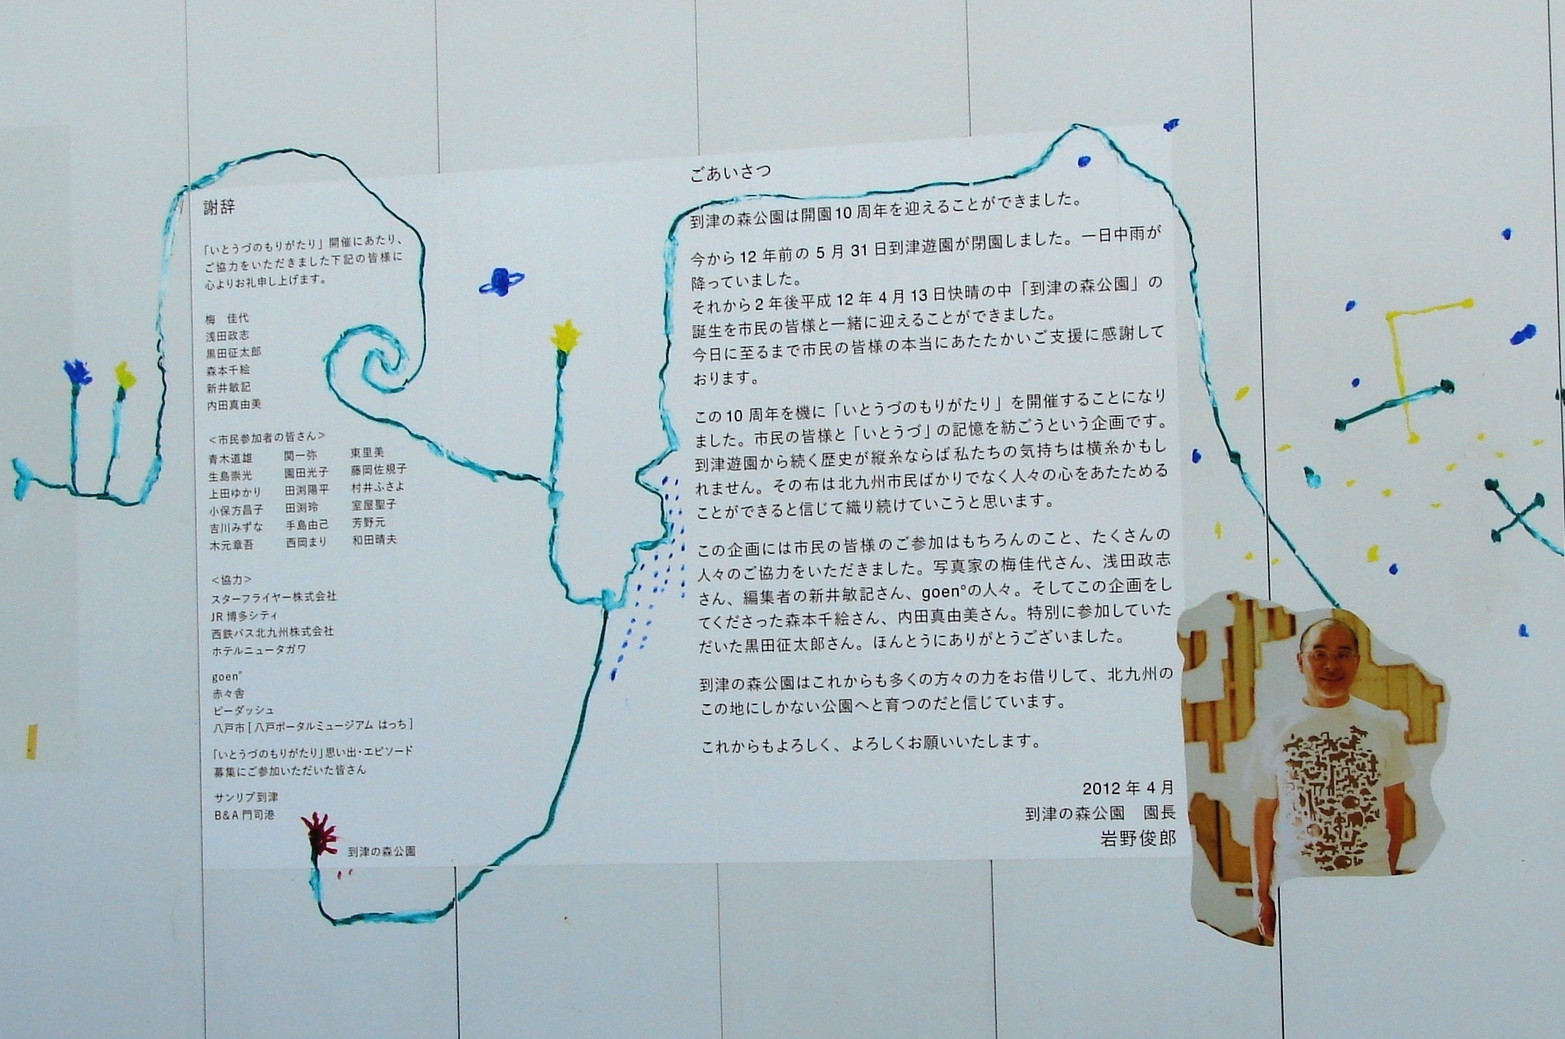 謝辞
「いとうづのもりがたり」開催にあたり、
ご協力をいただきました下記の皆様に
心よりお礼申し上げます。
梅　佳代
浅田政志
黒田征太郎
森本千絵
新井敏記
内田真由美
<市民参加者の皆さん>
青木道雄　関一弥　東里美
生島崇光　園田光子　藤岡佐規子
上田ゆかり　田渕陽平　村井ふさよ
小保方昌子　田渕玲　室屋聖子
吉川みずな　手島由己　芳野元
木元章吾　西岡まり　和田晴夫
<協力>
スターフライヤー株式会社
JR博多シティ
西鉄バス北九州株式会社
ホテルニュータガワ
goen°
赤々舎
ビーダッシュ
八戸市 [ 八戸ポータルミュージアム はっち ]
「いとうづのもりがたり」思い出・エピソード
募集にご参加いただいた皆さん
サンリブ到津
B&A門司港
到津の森公園
ごあいさつ
到津の森公園は開園10周年を迎えることができました。
今から12年前の5月31日到津遊園が閉園しました。一日中雨が
降っていました。
それから2年後平成12年4月13日快晴の中「到津の森公園」の
誕生を市民の皆様と一緒に迎えることができました。
今日に至るまで市民の皆様の本当にあたたかいご支援に感謝して
おります。
この10周年を機に「いとうづのもりがたり」を開催することになり
ました。市民の皆様と「いとうづ」の記憶を紡ごうという企画です。
到津遊園から続く歴史が縦糸ならば私たちの気持ちは横糸かもし
れません。その布は北九州市民ばかりでなく人々の心をあたためる
ことができると信じて織り続けていこうと思います。
この企画には市民の皆様のご参加はもちろんのこと、たくさんの
人々のご協力をいただきました。写真家の梅佳代さん、浅田政志
さん、編集者の新井敏記さん、goen°の人々。そしてこの企画をし
てくださった森本千絵さん、内田真由美さん。特別に参加していた
だいた黒田征太郎さん。ほんとうにありがとうございました。
到津の森公園はこれからも多くの方々の力をお借りして、北九州の
この地にしかない公園へと育つのだと信じています。
これからもよろしく、よろしくお願いいたします。
2012年4月
到津の森公園　園長
岩野俊郎